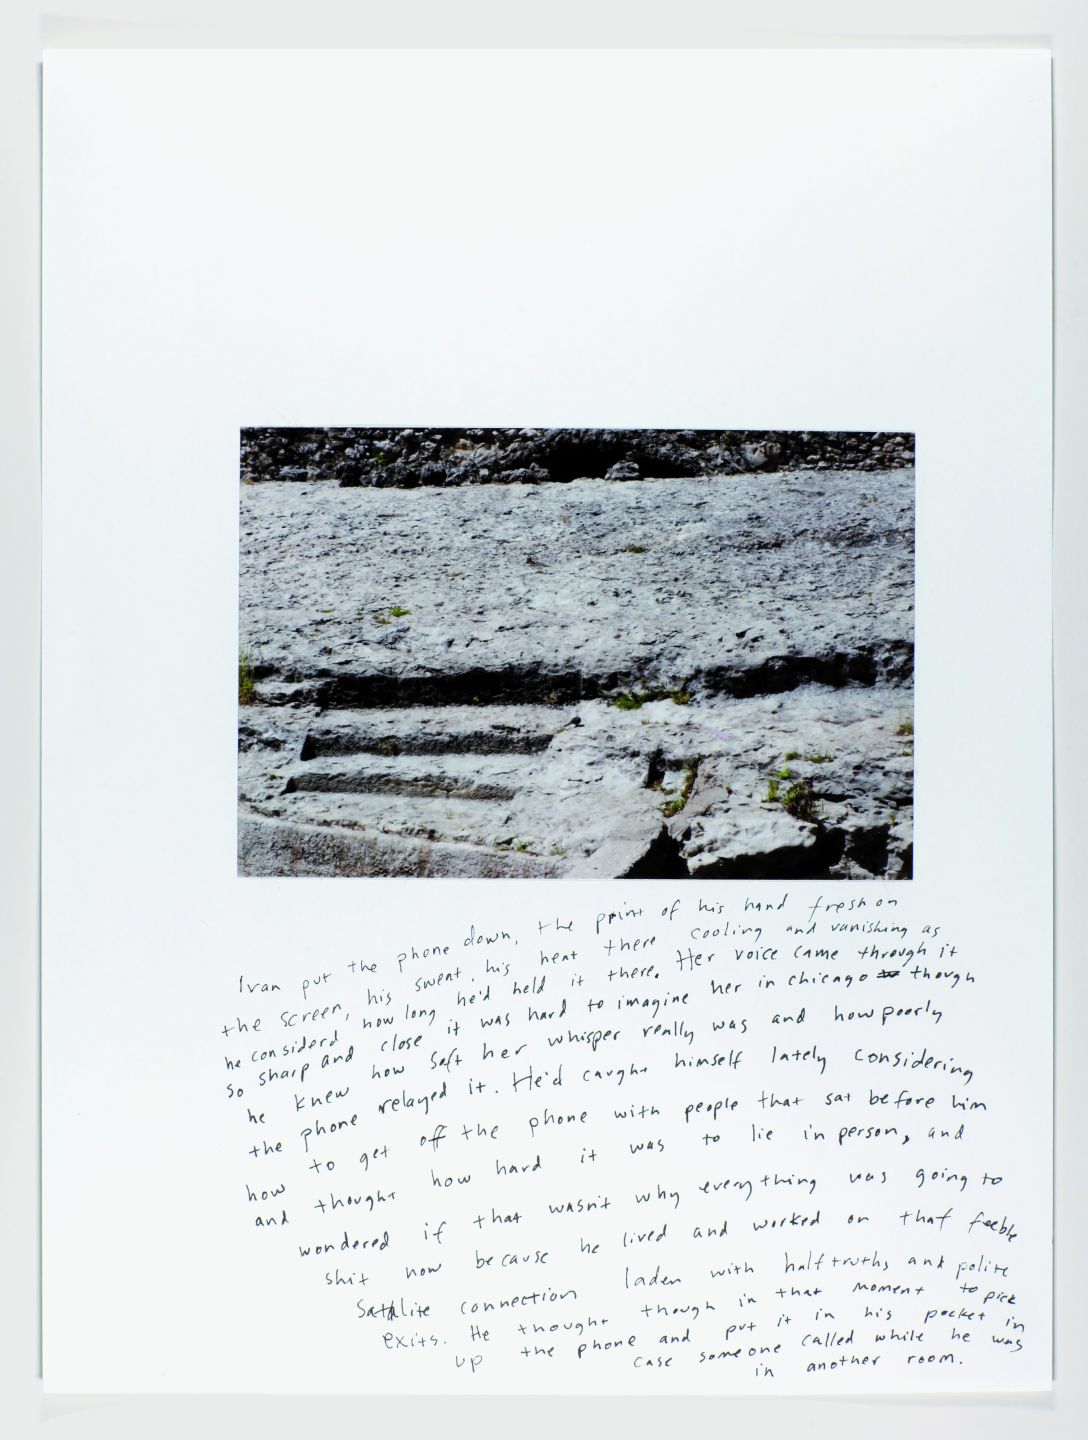 Ivan put the phone down, the print of his hand fresh on
the screen, his sweat, his heat there cooling and vanishing as
he considerd how long he'd held it there. Her voice came through it
so sharp and close it was hard to imagine her in chicago though
he knew how soft her whisper really was and how poorly
the phone relayed it. He'd caught himself lately considering
how to get off the phone with people that sat before him
and thought how hard it was to lie in person, and
wondered if that wasn't why everything was going to
shit now because he lived and worked on that feeble
Satalite connection laden with half truths and polite
exits. He thought though in that moment to pick
up the phone and put it in his pocket in
case someone called while he was
in another room.